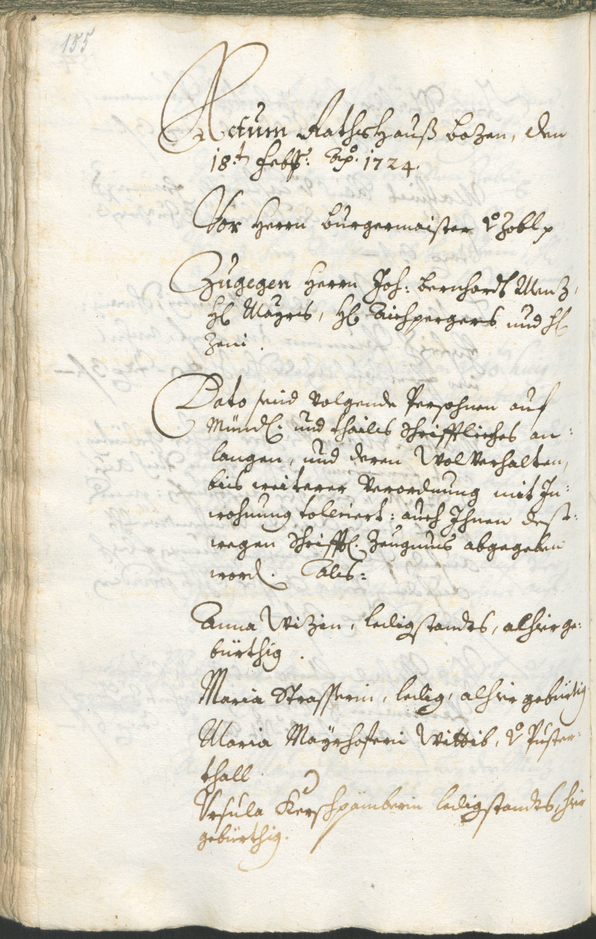 155
Actum Rathshauß Bozen, den
18t. Febr: Aõ: 1724.
Vor Herrn Burgermaister v: Zobl p
Zugegen Herrn Joh: Bernhardt Menz,
H: Mayrl, H: Aichpergers und H:
Zeni.
Dato seind volgende Persohnen auf
Mündl: und theils schrifftliches an-
langen, und deren Wolverhalten,
bis weiterer Verordnung mit In-
wohnung tolleriert: auch Ihnen dest-
wegen schrifftl: Zeugnus abgegeben
word. Als:
Anna Wizin, ledigstandts, alhier ge-
bürthig.
Maria Strasserin, ledig, alhier gebürtig
Maria Mayrhoferin Wittib, v: Puster-
thall.
Ursula Kerschpämberin ledigstandts, hier
gebürthig.